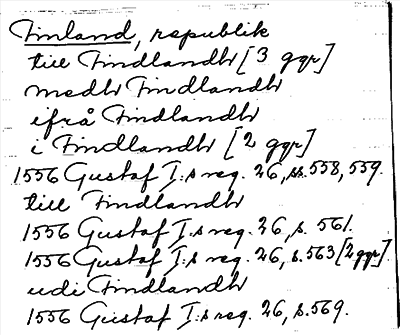 Finland, republik
till Findlandh [3 ggr]
medh Findlandh
ifrå Findlandh
i Findlandh [2 ggr]
1556 Gustaf I:s reg. 26, ss. 558, 559.
till Findlandh
1556 Gustaf I:s reg. 26, s. 561.
1556 Gustaf I:s reg. 26, s. 563 [2 ggr].
udi Findlandh
1556 Gustaf I:s reg. 26, s. 569.